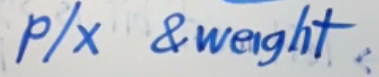 p/x & weight